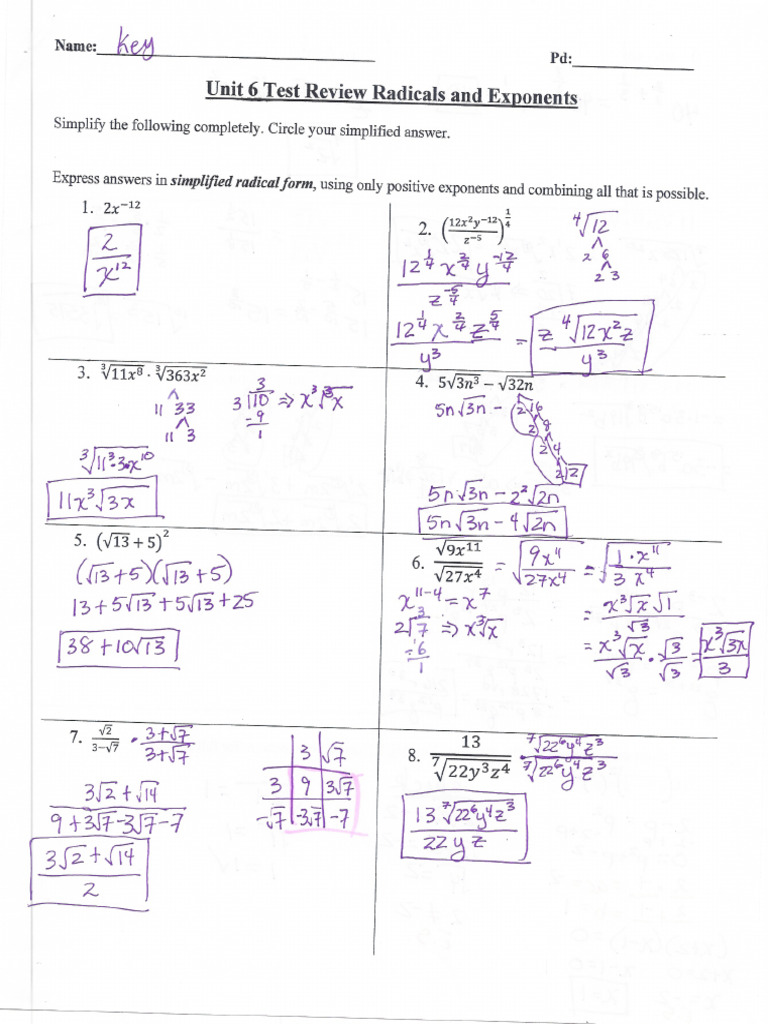 Name: Key
Pd:
Unit 6 Test Review Radicals and Exponents
Simplify the following completely. Circle your simplified answer.
Express answers in simplified radical form, using only positive exponents and combining all that is possible.
1. 2x⁻¹²
2/x¹²
2. (12x²y⁻¹²/z⁻⁵)^(1/4)
⁴√12
2 6
2 3
12^(1/4) x^(2/4) y^(-12/4) / z^(-5/4)
12^(1/4) x^(2/4) z^(5/4) / y³ = z ⁴√(12x²z) / y³
3. ³√(11x⁸) · ³√(363x²)
11 33
11 3
3
3 10 ⇒ x³ ³√x
-9
1
³√(11³·3·x¹⁰)
11x³√(3x)
4. 5√(3n³) − √(32n)
5n√(3n) −
2 16
2 8
2 4
2 2
5n√(3n) − 2²√(2n)
5n√(3n) − 4√(2n)
5. (√13 + 5)²
(√13 + 5)(√13 + 5)
13 + 5√13 + 5√13 + 25
38 + 10√13
6. √(9x¹¹)/√(27x⁴) = √(9x¹¹/27x⁴) = √(1·x¹¹/3 x⁴)
x¹¹⁻⁴ = x⁷
3
2 7 ⇒ x³√x
-6
1
= x³√x √1 / √3
= x³√x/√3 · √3/√3 = x³√(3x)/3
7. √2/(3−√7) · (3+√7)/(3+√7)
3 √7
3 9 3√7
-√7 -3√7 -7
3√2 + √14
9 + 3√7 − 3√7 − 7
3√2 + √14
2
8. 13/⁷√(22y³z⁴) · ⁷√(22⁶y⁴z³)/⁷√(22⁶y⁴z³)
13 ⁷√(22⁶y⁴z³)
22 y z